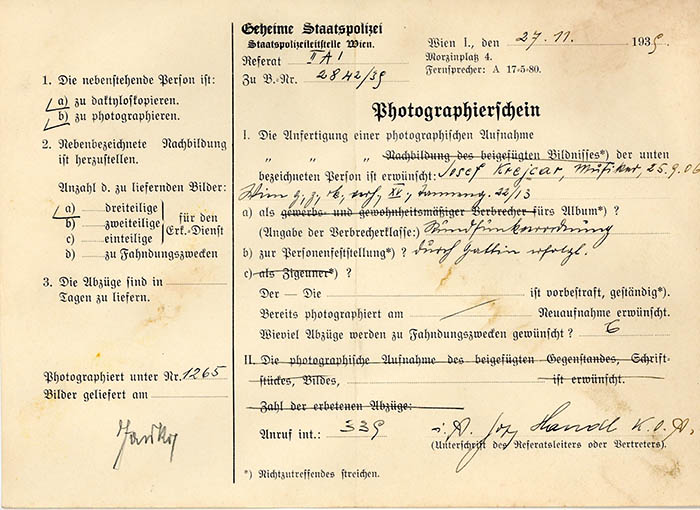 1. Die nebenstehende Person ist:
a) zu daktyloskopieren.
b) zu photographieren.
2. Nebenbezeichnete Nachbildung
ist herzustellen.
Anzahl d. zu liefernden Bilder:
a) ........ dreiteilige
b) ........ zweiteilige
c) ........ einteilige
für den
Erk.-Dienst
d) ........ zu Fahndungszwecken
3. Die Abzüge sind in
Tagen zu liefern.
Photographiert unter Nr. 1265
Bilder geliefert am
Geheime Staatspolizei
Staatspolizeileitstelle Wien.
Referat II A 1
Zu B.-Nr. 2842/39
Wien I., den 27. 11. 1939.
Morzinplatz 4.
Fernsprecher: A 17-5-80.
Photographierschein
I. Die Anfertigung einer photographischen Aufnahme
" " " Nachbildung des beigefügten Bildnisses*) der unten
bezeichneten Person ist erwünscht: Josef Krejcar, Musiker, 25.9.06
Wien g., z., rk., verh., XV., 22/13
a) als gewerbs- und gewohnheitsmäßiger Verbrecher fürs Album*) ?
(Angabe der Verbrecherklasse:) Rundfunkverordnung
b) zur Personenfeststellung*) ? durch Gattin erfolgt.
c) als Zigeuner*) ?
Der — Die ist vorbestraft, geständig*).
Bereits photographiert am — Neuaufnahme erwünscht.
Wieviel Abzüge werden zu Fahndungszwecken gewünscht ? 6
II. Die photographische Aufnahme des beigefügten Gegenstandes, Schrift-
stückes, Bildes, ist erwünscht.
Zahl der erbetenen Abzüge:
Anruf int.: 339 i. A. Handl K.O.A.
(Unterschrift des Referatsleiters oder Vertreters).
*) Nichtzutreffendes streichen.